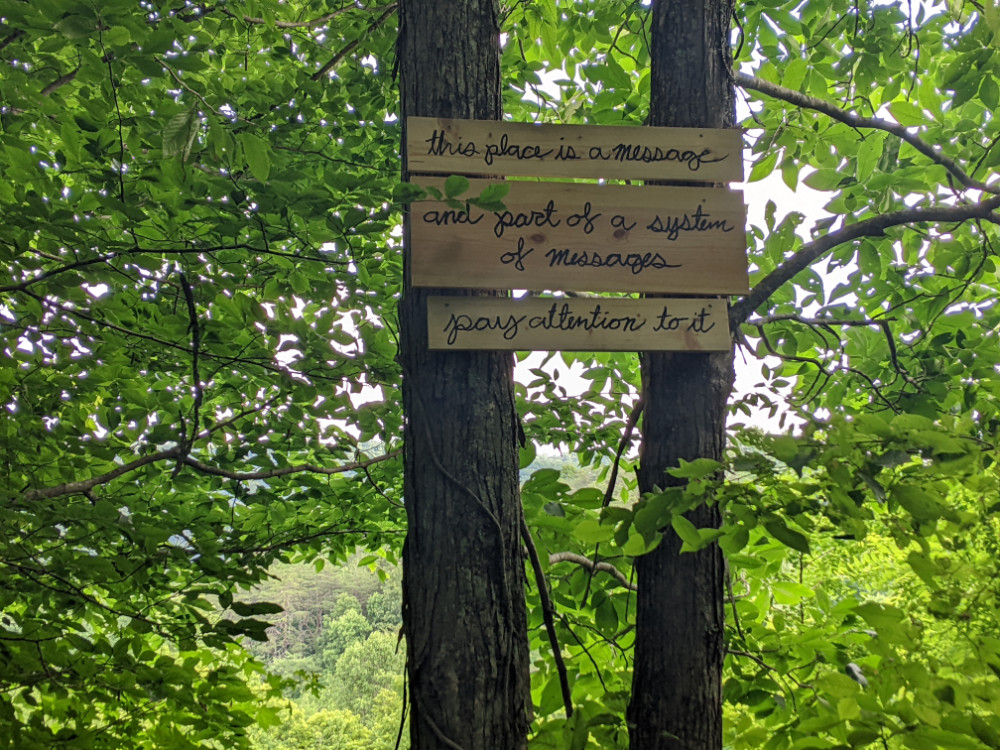 this place is a message
and part of a system
of messages
pay attention to it